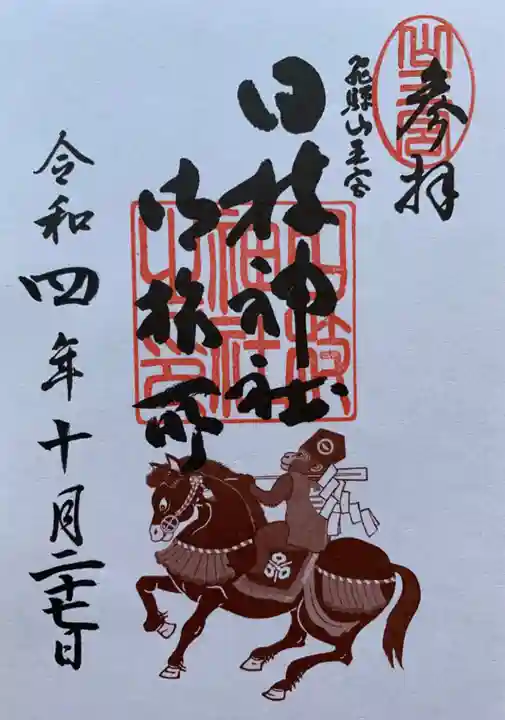 参拝
飛騨山王宮
日枝神社
御旅所
令和四年十月二十七日
山王宮
日枝
神社
之印